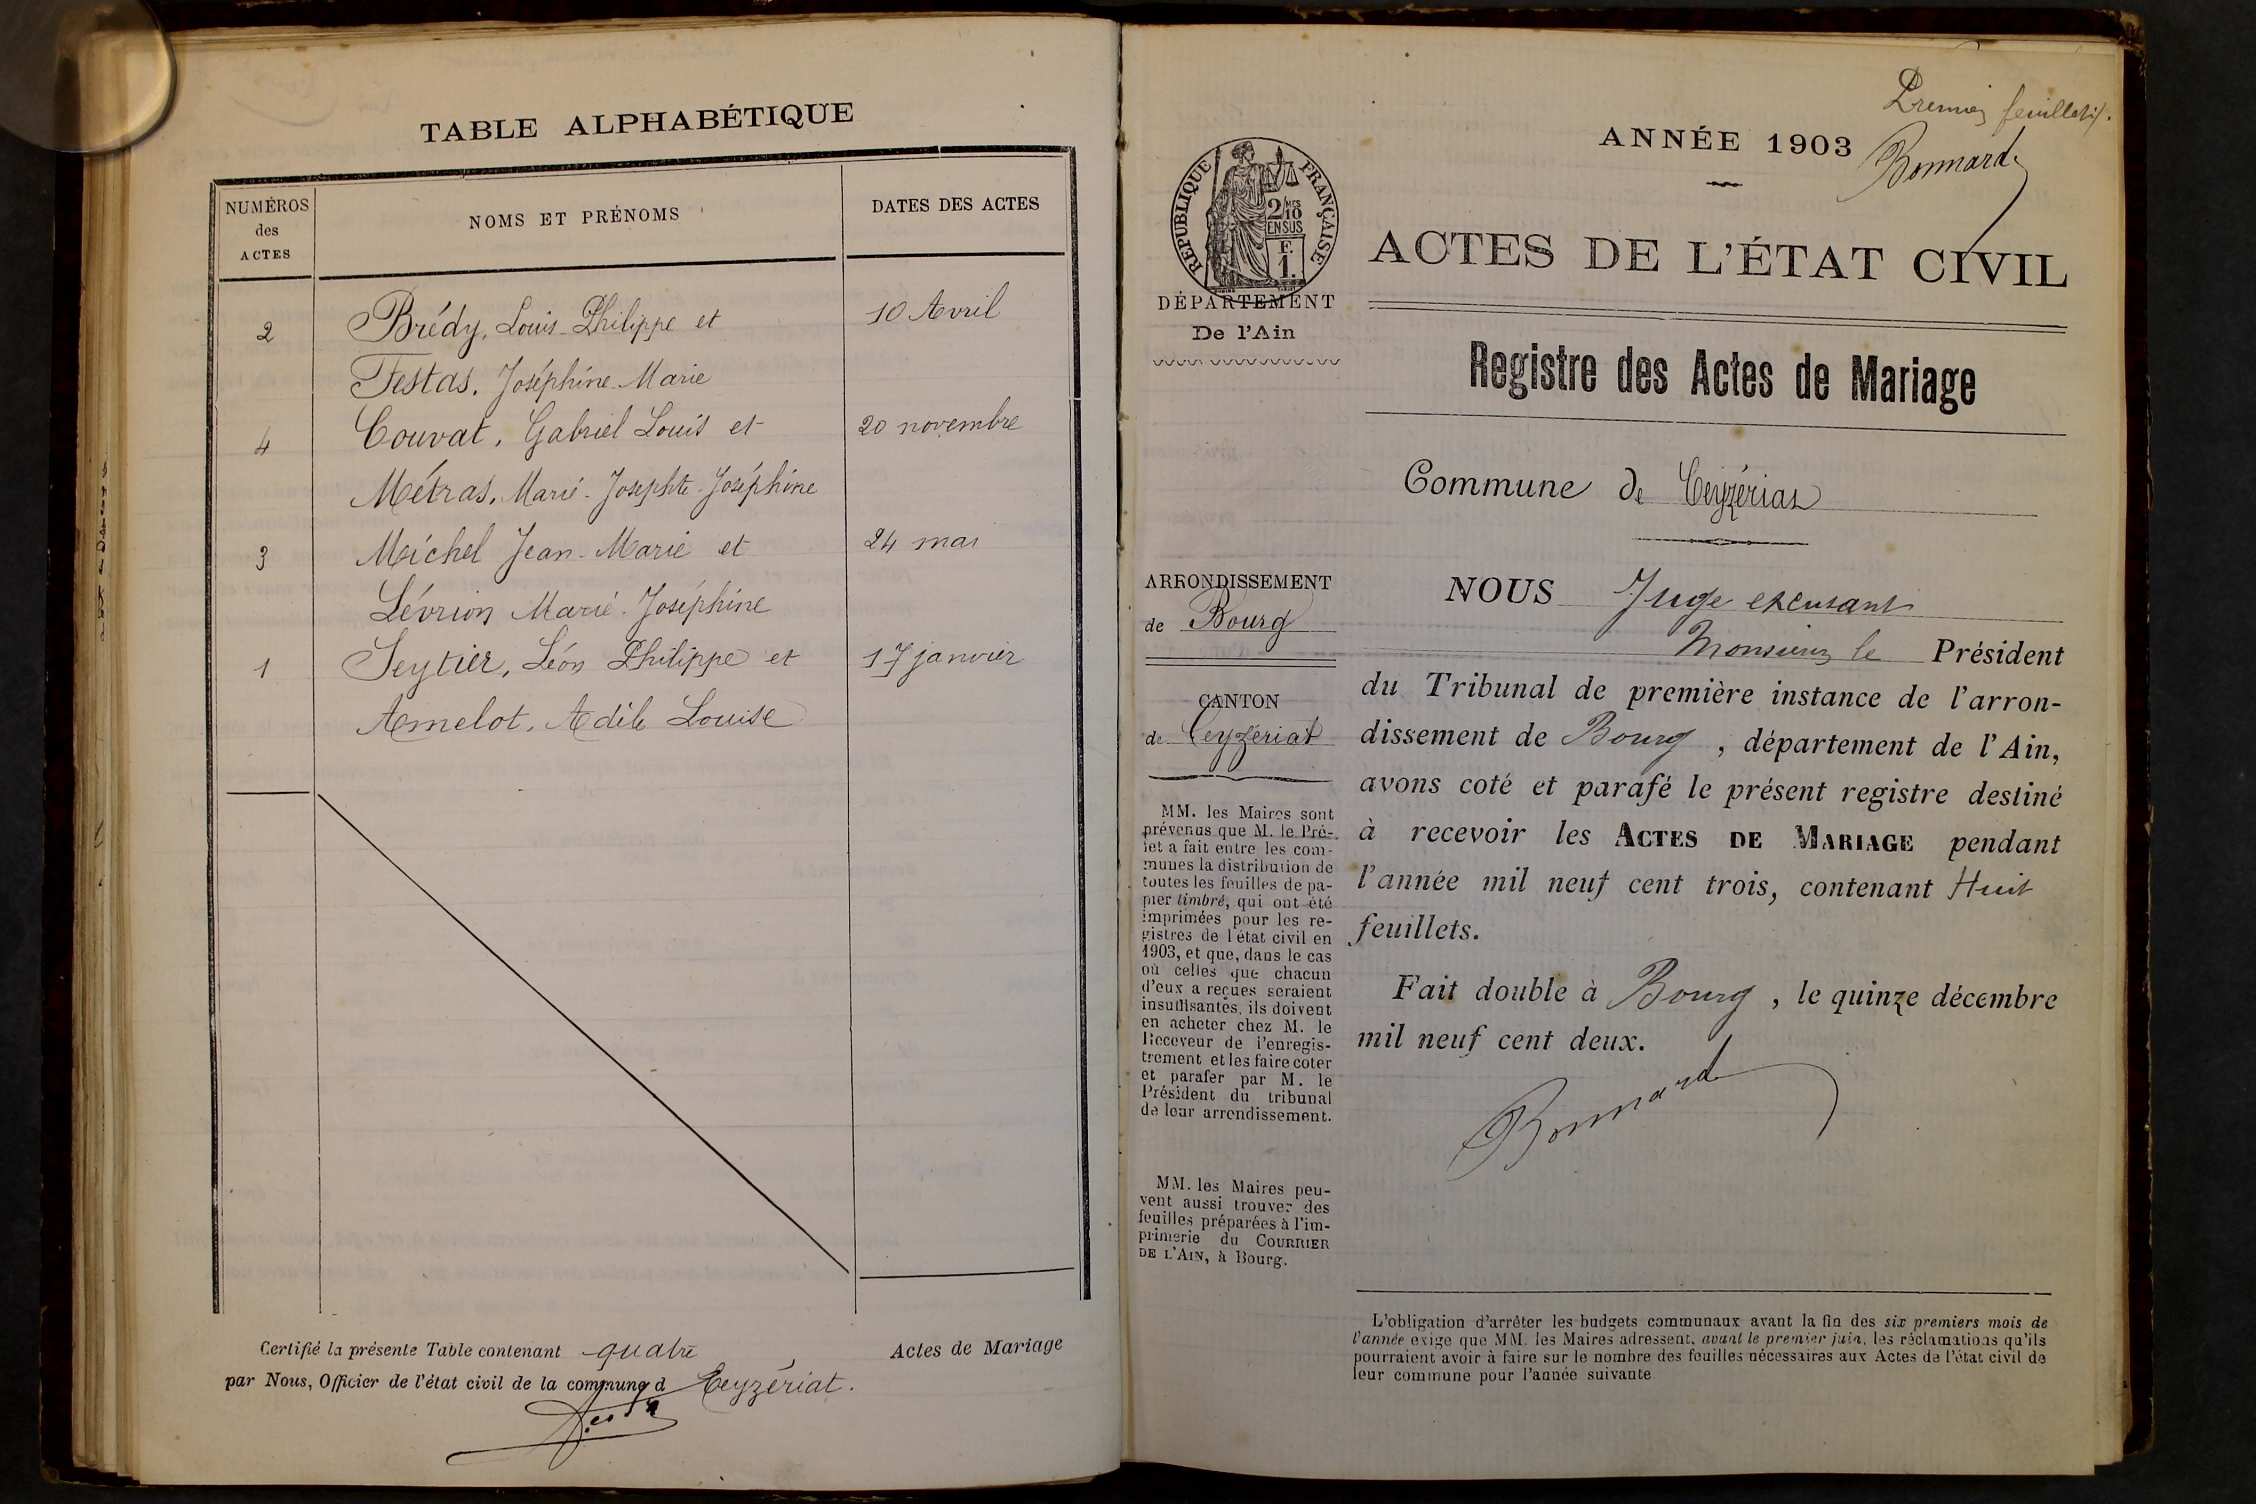 TABLE ALPHABÉTIQUE
NUMÉROS
des
ACTES
NOMS ET PRÉNOMS
DATES DES ACTES
2 Brédy, Louis-Philippe et 10 Avril
Festas, Joséphine Marie
4 Couvat, Gabriel Louis et 20 novembre
Métras, Marie-Josephte-Joséphine
3 Michel Jean-Marie et 24 mai
Lévrion Marie-Joséphine
1 Seytier, Léon Philippe et 17 janvier
Amelot, Adèle Louise
Certifié la présente Table contenant quatre Actes de Mariage
par Nous, Officier de l'état civil de la commune d Ceyzériat.
Premier feuillet
Bonnard
ANNÉE 1903
RÉPUBLIQUE FRANÇAISE
2/10 MES
EN SUS
F.
1.
ACTES DE L'ÉTAT CIVIL
DÉPARTEMENT
De l'Ain
Registre des Actes de Mariage
Commune de Ceyzériat
ARRONDISSEMENT
de Bourg
CANTON
de Ceyzériat
MM. les Maires sont
prévenus que M. le Pré-
fet a fait entre les com-
munes la distribution de
toutes les feuilles de pa-
pier timbré, qui ont été
imprimées pour les re-
gistres de l'état civil en
1903, et que, dans le cas
où celles que chacun
d'eux a reçues seraient
insuffisantes, ils doivent
en acheter chez M. le
Receveur de l'enregis-
trement et les faire coter
et parafer par M. le
Président du tribunal
de leur arrondissement.
MM. les Maires peu-
vent aussi trouver des
feuilles préparées à l'im-
primerie du COURRIER
DE L'AIN, à Bourg.
NOUS Juge excusant
Monsieur le Président
du Tribunal de première instance de l'arron-
dissement de Bourg, département de l'Ain,
avons coté et parafé le présent registre destiné
à recevoir les ACTES DE MARIAGE pendant
l'année mil neuf cent trois, contenant Huit
feuillets.
Fait double à Bourg, le quinze décembre
mil neuf cent deux.
Bonnard
L'obligation d'arrêter les budgets communaux avant la fin des six premiers mois de
l'année exige que MM. les Maires adressent, avant le premier juin, les réclamations qu'ils
pourraient avoir à faire sur le nombre des feuilles nécessaires aux Actes de l'état civil de
leur commune pour l'année suivante